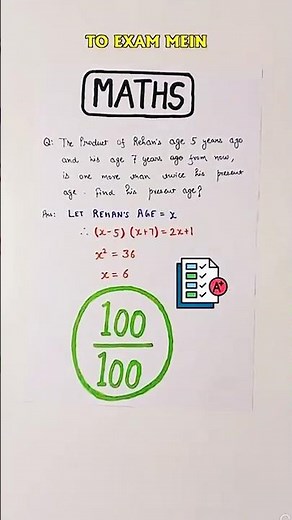 TO EXAM MEIN
MATHS
Q: The Product of Rehan's age 5 years ago
and his age 7 years ago from now,
is one more than twice his present
age. find his present age?
Ans: LET REHAN'S AGE = x
∴ (x-5) (x+7) = 2x+1
x² = 36
x = 6
A+
100
100